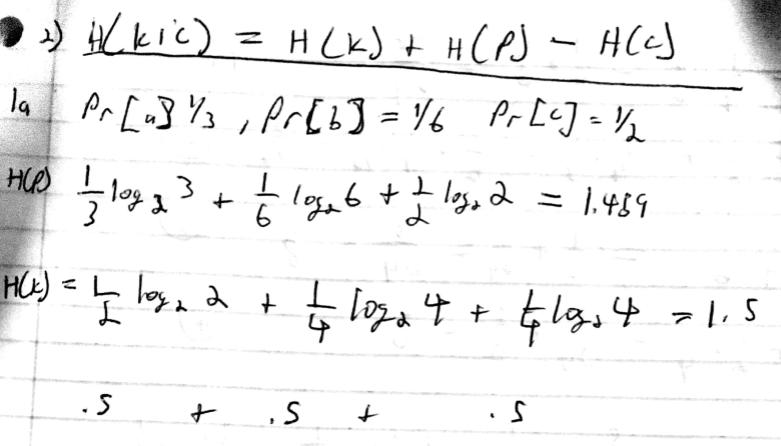 2) H(K|C) = H(K) + H(P) - H(C)
1a Pr[a] 1/3, Pr[b] = 1/6 Pr[c] = 1/2
H(P) 1/3 log₂ 3 + 1/6 log₂ 6 + 1/2 log₂ 2 = 1.459
H(K) = 1/2 log₂ 2 + 1/4 log₂ 4 + 1/4 log₂ 4 = 1.5
.5 + .5 + .5